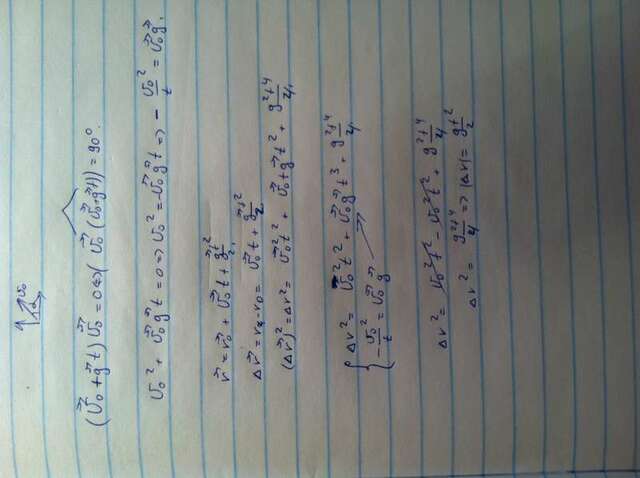 v₀
(v⃗₀ + g⃗t) v⃗₀ = 0 ⇔ ( v⃗₀ (v⃗₀+g⃗t)) = 90°.
v₀² + v⃗₀g⃗t = 0 => v₀² = -v⃗₀g⃗t => - v₀²/t = v⃗₀g⃗.
r⃗ = r⃗₀ + v⃗₀t + g⃗t²/2,
Δr⃗ = r₂-r₀ = v⃗₀t + g⃗t²/2
(Δr⃗)² = Δr² = v⃗₀²t² + v⃗₀+g⃗t² + g²t⁴/4,
{ Δr² = v₀²t² + v⃗₀g⃗t³ + g²t⁴/4
-v₀²/t = v⃗₀g⃗
Δr² = v₀²t² - v₀²t² + g²t⁴/4
Δr² = g²t⁴/4 => |Δr| = gt²/2